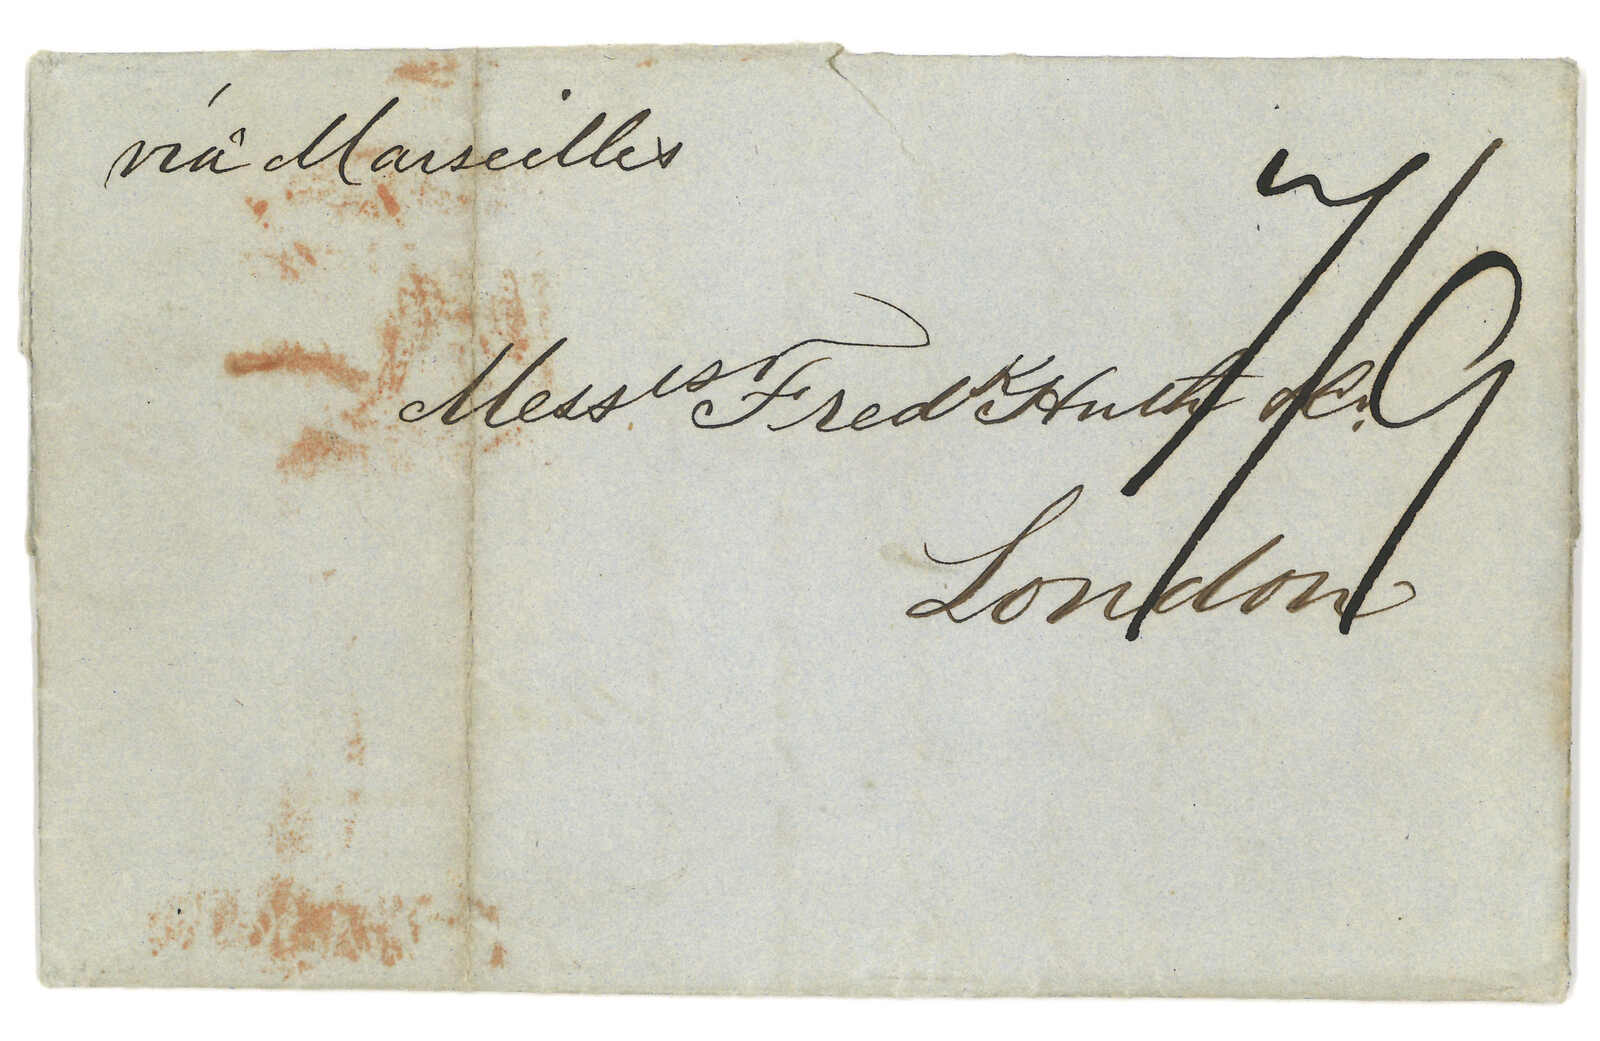 viâ Marseilles
7/9
Messrs. Fredk Huth & Co.
London